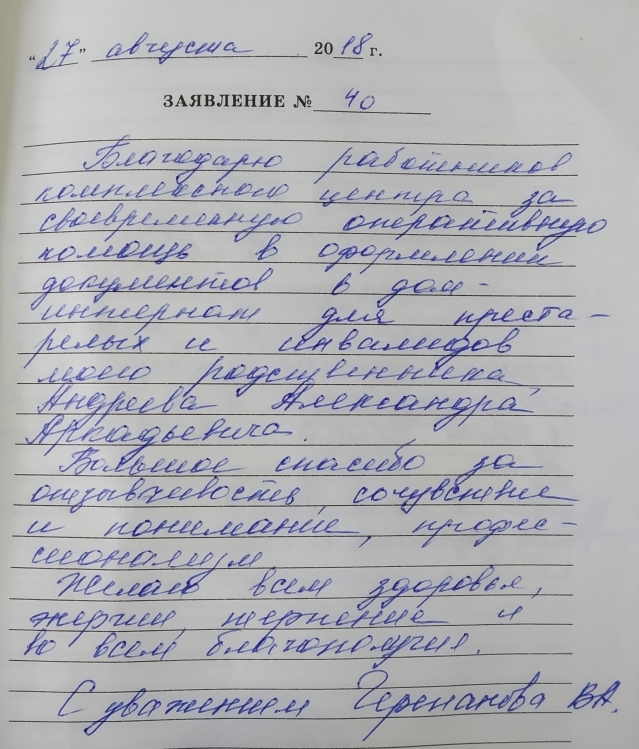 "27" августа 2018 г.
ЗАЯВЛЕНИЕ № 40
Благодарю работников
комплексного центра за
своевременную оперативную
помощь в оформлении
документов в дом-
интернат для преста-
релых и инвалидов
моего родственника,
Андреева Александра
Аркадьевича.
Большое спасибо за
отзывчивость, сочувствие
и понимание, профес-
сионализм
Желаю всем здоровья,
энергии, терпение и
во всем благополучия.
С уважением В.А.